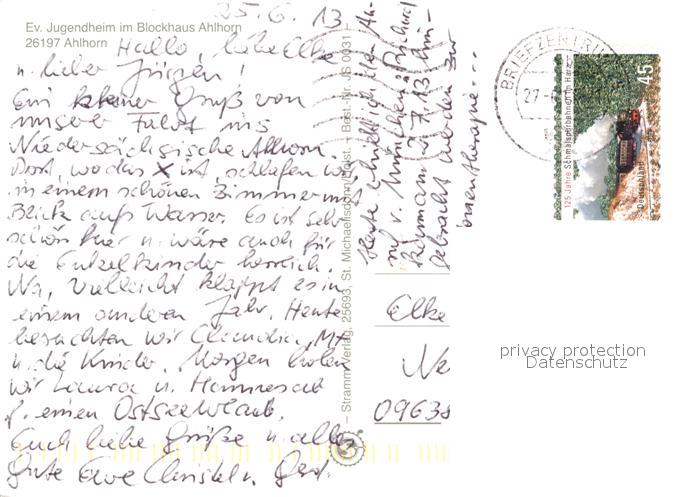 25.6.13
Ev. Jugendheim im Blockhaus Ahlhorn
26197 Ahlhorn
Hallo, liebe Elke
u. lieber Jürgen!
Ein kleiner Gruß von
unserer Fahrt ins
Niedersächsische Ahlhorn.
Dort, wo das X ist schlafen wir,
in einem schönen Zimmer mit
Blick aufs Wasser. Es ist sehr
schön hier u. wäre auch für
die Enkelkinder herrlich.
Na, vielleicht klappt es in
einem anderen Jahr. Heute
besuchten wir Claudia, M
u. die Kinder. Morgen holen
wir Laura u. ab
f. einen Ostseeurlaub.
Euch liebe Grüße u. alles
Gute Eure Christel u. Gerd.
Heute erhielt ich den
v. München
7.13
gebracht werden zur
– Stramm Verlag, 25693, St. Michaelisdonn/Holst. – Best.-Nr. JS 0031 –
BRIEFZENTRUM
27
125 Jahre Schmalspurbahnen im Harz
Deutschland
45
Elke
Ne
09638
privacy protection
Datenschutz